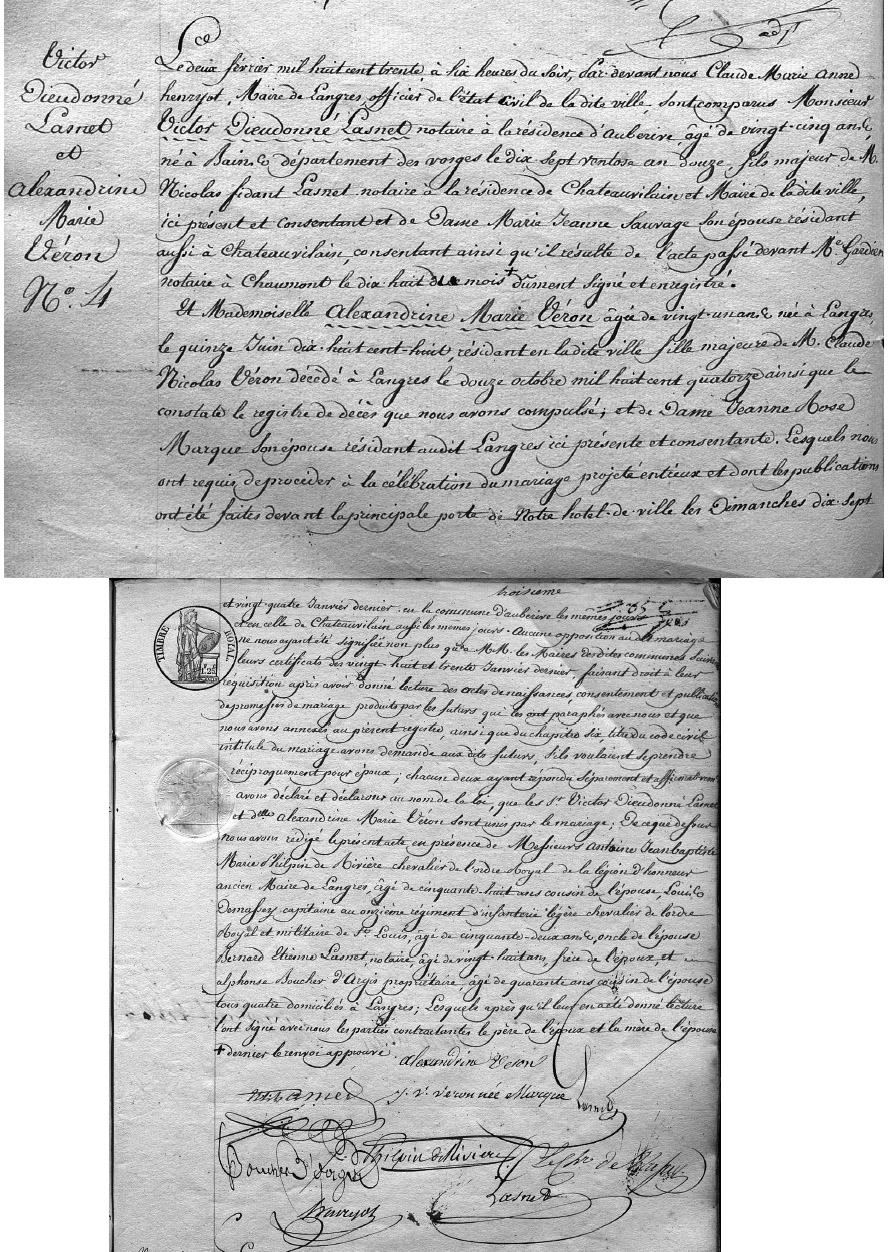 Victor
Dieudonné
Lasnet
et
Alexandrine
Marie
Véron
N.º 4
Le deux février mil huit cent trente, à six heures du soir, par devant nous Claude Marie Anne
henryot, Maire de Langres, officier de l'état civil de la dite ville, sont comparus Monsieur
Victor Dieudonné Lasnet notaire à la résidence d'Auberive, âgé de vingt-cinq ans,
né à Bains, département des vosges le dix sept ventose an douze, fils majeur de M.
Nicolas fidant Lasnet notaire à la résidence de Chateauvilain et Maire de la dite ville,
ici présent et consentant et de Dame Marie Jeanne Sauvage son épouse résidant
aussi à Chateauvilain, consentant ainsi qu'il résulte de l'acte passé devant M.e Gardien
notaire à Chaumont le dix huit du mois + dûment signé et enregistré.
Et Mademoiselle Alexandrine Marie Véron âgée de vingt-un ans, née à Langres
le quinze Juin dix-huit cent-huit, résidant en la dite ville fille majeure de M. Claude
Nicolas Véron décédé à Langres le douze octobre mil huit cent quatorze ainsi que le
constate le registre de décès que nous avons compulsé; et de Dame Jeanne Rose
Marque son épouse résidant audit Langres ici présente et consentante. Lesquels nous
ont requis de procéder à la célébration du mariage projeté entr'eux et dont les publications
ont été faites devant la principale porte de Notre hotel-de-ville les Dimanches dix-sept
troisieme
et vingt-quatre Janvier dernier, en la commune d'auberive les mêmes jours
et en celle de Chateauvilain aussi les mêmes jours. Aucune opposition audit mariage
ne nous ayant été signifiée non plus qu'à M.M. les Maires desdites communes suivant
leurs certificats des vingt-huit et trente Janvier dernier, faisant droit à leur
réquisition après avoir donné lecture des actes de naissances, consentement et publications
de promesses de mariage produits par les futurs qui les ont paraphés avec nous et que
nous avons annexés au présent registre, ainsi que du chapitre six, titre du code civil
intitulé du mariage avons demandé aux dits futurs, s'ils voulaient se prendre
réciproquement pour époux; chacun deux ayant répondu séparément et affirmativem
avons déclaré et déclarons au nom de la loi, que les S.r Victor Dieudonné Lasnet
et d.lle Alexandrine Marie Véron sont unis par le mariage; De ce que dessus
nous avons rédigé le présent acte en présence de Messieurs Antoine Jean baptiste
Marie Philpin de Rivière chevalier de l'ordre Royal de la légion d'honneur
ancien Maire de Langres, âgé de cinquante-huit ans cousin de l'épouse Louis
Demassey capitaine au onzième régiment d'infanterie légère chevalier de l'ordre
Royal et militaire de S.t Louis, âgé de cinquante-deux ans, oncle de l'épouse
Bernard Etienne Lasnet, notaire, âgé de vingt-huit ans, frère de l'époux, et
alphonse Boucher d'Argis propriétaire, âgé de quarante ans cousin de l'épouse
tous quatre domiciliés à Langres; Lesquels après qu'il leur en a été donné lecture
l'ont signé avec nous les parties contractantes le père de l'époux et la mère de l'épouse
+ dernier le renvoi approuvé.
Alexandrin Véron
J. V. Veron née Marque
Lasnet
Boucher d'argis
Philpin de Rivière
Lasnet
henryot
TIMBRE ROYAL
1. 25